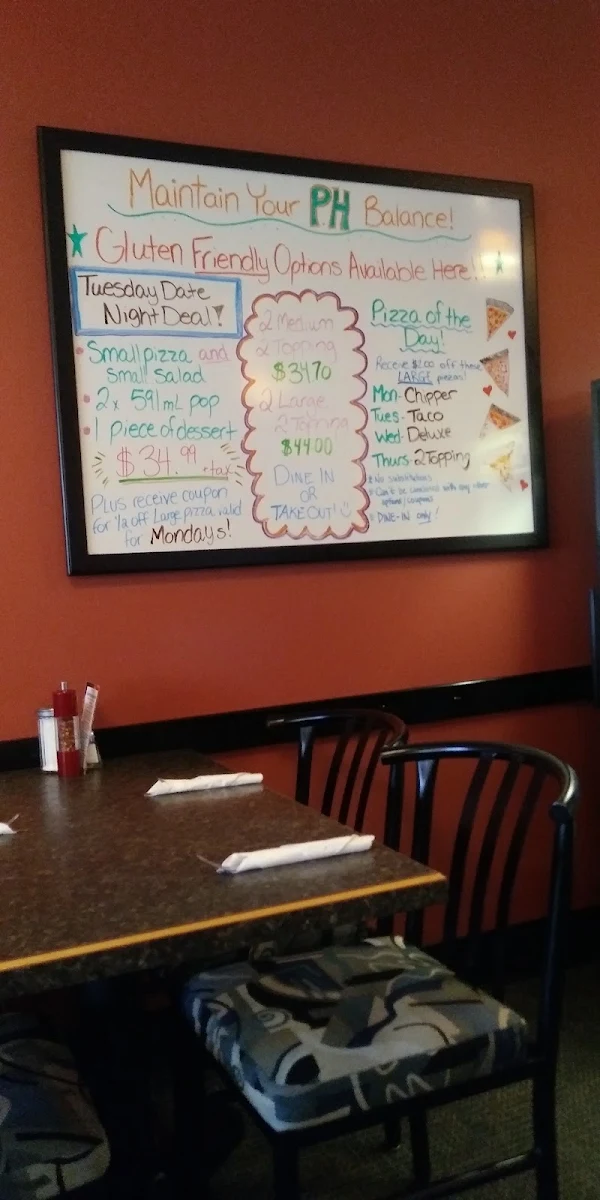 Maintain Your PH Balance!
Gluten Friendly Options Available Here!!
Tuesday Date
Night Deal!
Small pizza and
small salad
2x 591mL pop
1 piece of dessert
$34.99 +tax
Plus receive coupon
for 1/2 off Large pizza, valid
for Mondays!
2 Medium
2 Topping
$34.70
2 Large
2 Topping
$44.00
DINE IN
OR
TAKE OUT!
Pizza of the
Day!
Receive $2.00 off these
LARGE pizzas!
Mon- Chipper
Tues- Taco
Wed- Deluxe
Thurs- 2 Topping
* No substitutions
* Can't be combined with any other
options / coupons
* DINE-IN only!